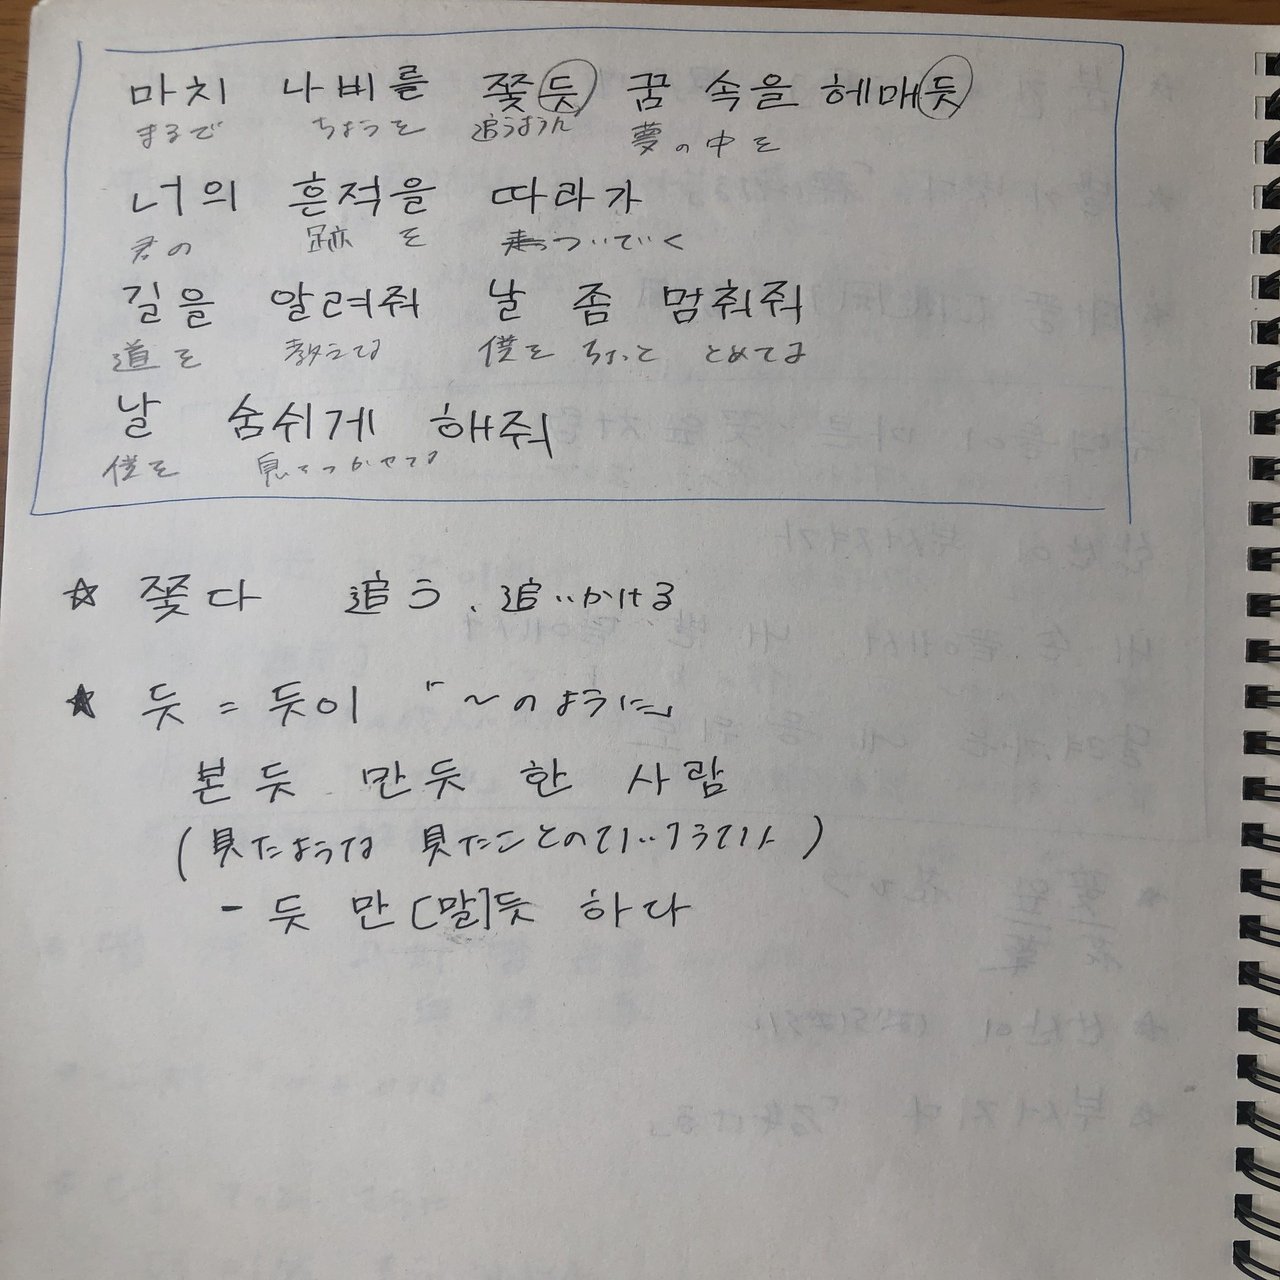 마치 나비를 쫓듯 꿈 속을 헤매듯
まるで ちょうを 追うように 夢の中を
너의 흔적을 따라가
君の 跡を ついていく
길을 알려줘 날 좀 멈춰줘
道を 教えてよ 僕を ちょっと とめてよ
날 숨쉬게 해줘
僕を
☆ 쫓다 追う、追いかける
★ 듯 = 듯이 「~のように」
본듯 만듯 한 사람
(見たような 見たことの
- 듯 만[말]듯 하다